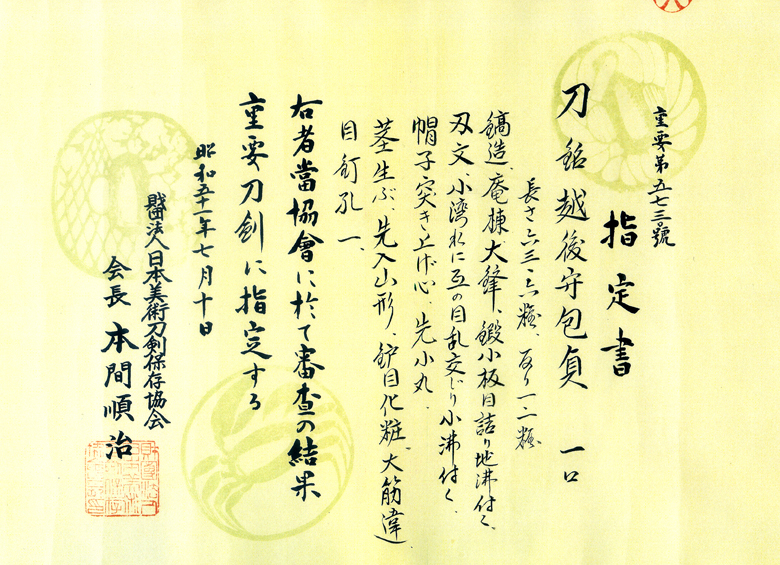 重要第五七三號
指定書
刀 銘 越後守包貞 一口
長さ六三・六糎、反り一・二糎
鎬造、庵棟、大鋒、鍛小板目詰り地沸付く、
刄文、小湾れに互の目乱交じり小沸付く、
帽子突き上げ心、先小丸、
茎生ぶ、先入山形、鈩目化粧、大筋違
目釘孔一、
右者當協會に於て審査の結果
重要刀剣に指定する
昭和五十一年七月十日
財団法人日本美術刀剣保存協会
会長 本間順治